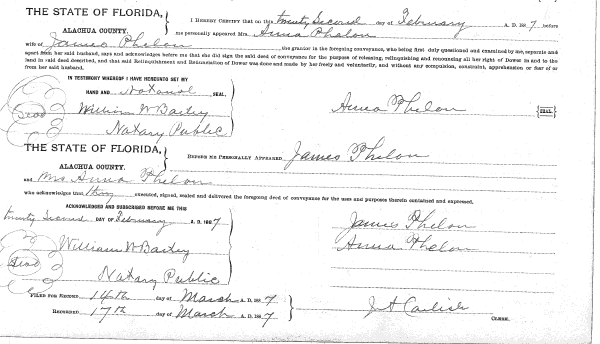 THE STATE OF FLORIDA,
ALACHUA COUNTY.
I HEREBY CERTIFY that on this twenty Second day of February A. D. 1887 before
me personally appeared Mrs. Anna Phelon
wife of James Phelon the grantor in the foregoing conveyance, who being first duly questioned and examined by me, separate and
apart from her said husband, says and acknowledges before me that she did sign the said deed of conveyance for the purpose of releasing, relinquishing and renouncing all her right of Dower in and to the
land in said deed described, and that said Relinquishment and Renunciation of Dower was done and made by her freely and voluntarily, and without any compulsion, constraint, apprehension or fear of or
from her said husband.
IN TESTIMONY WHEREOF I HAVE HEREUNTO SET MY
HAND AND Notarial SEAL.
Seal William W Bailey Anna Phelon SEAL.
Notary Public
THE STATE OF FLORIDA,
ALACHUA COUNTY.
BEFORE ME PERSONALLY APPEARED James Phelon
and Mrs. Anna Phelon
who acknowledges that they executed, signed, sealed and delivered the foregoing deed of conveyance for the uses and purposes therein contained and expressed.
ACKNOWLEDGED AND SUBSCRIBED BEFORE ME THIS
twenty Second DAY OF February A. D. 1887
James Phelon
Anna Phelon
Seal William W Bailey
Notary Public
FILED FOR RECORD 14th day of March A. D. 1887
RECORDED 17th day of March A. D. 1887
J A Carlisle
CLERK.